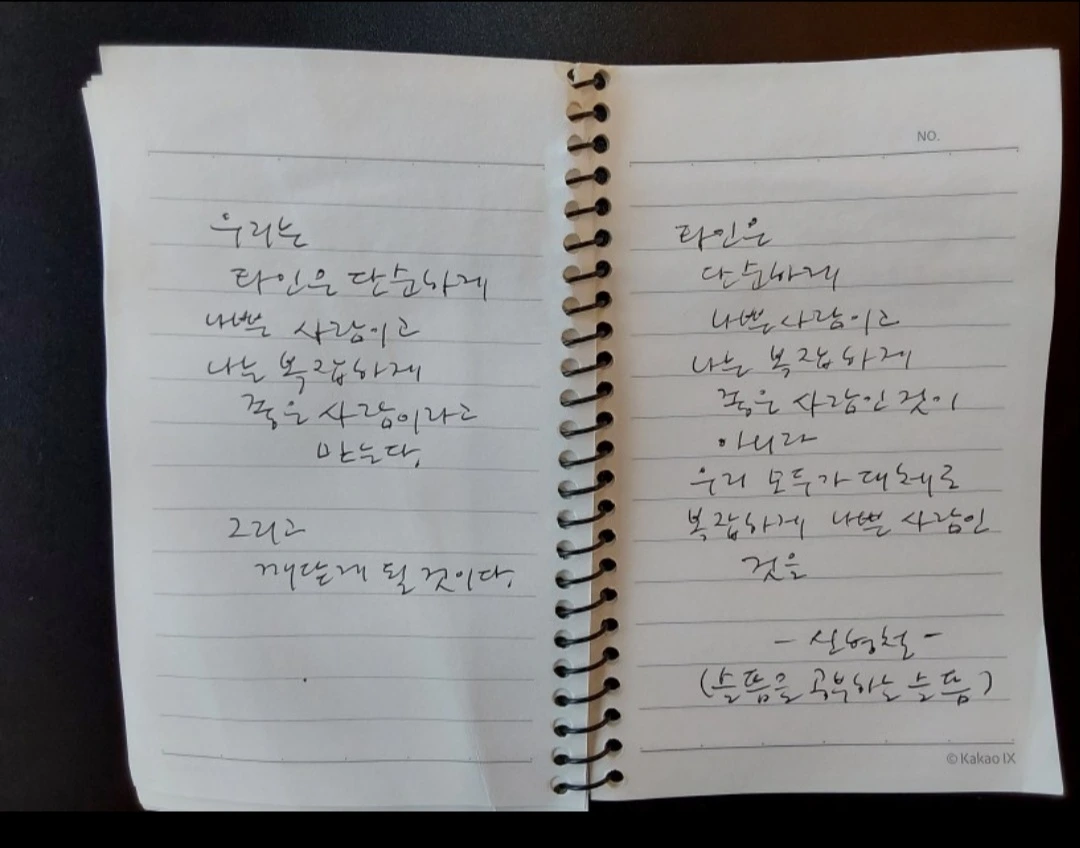 우리는
타인은 단순하게
나쁜 사람이고
나는 복잡하게
좋은 사람이라고
만는다.
그리고
깨닫게 될 것이다.
NO.
타인은
단순하게
나쁜 사람이고
나는 복잡하게
좋은 사람인 것이
아니라
우리 모두가 대체로
복잡하게 나쁜 사람인
것을
- 신형철 -
(슬픔을 공부하는 슬픔)
© Kakao IX